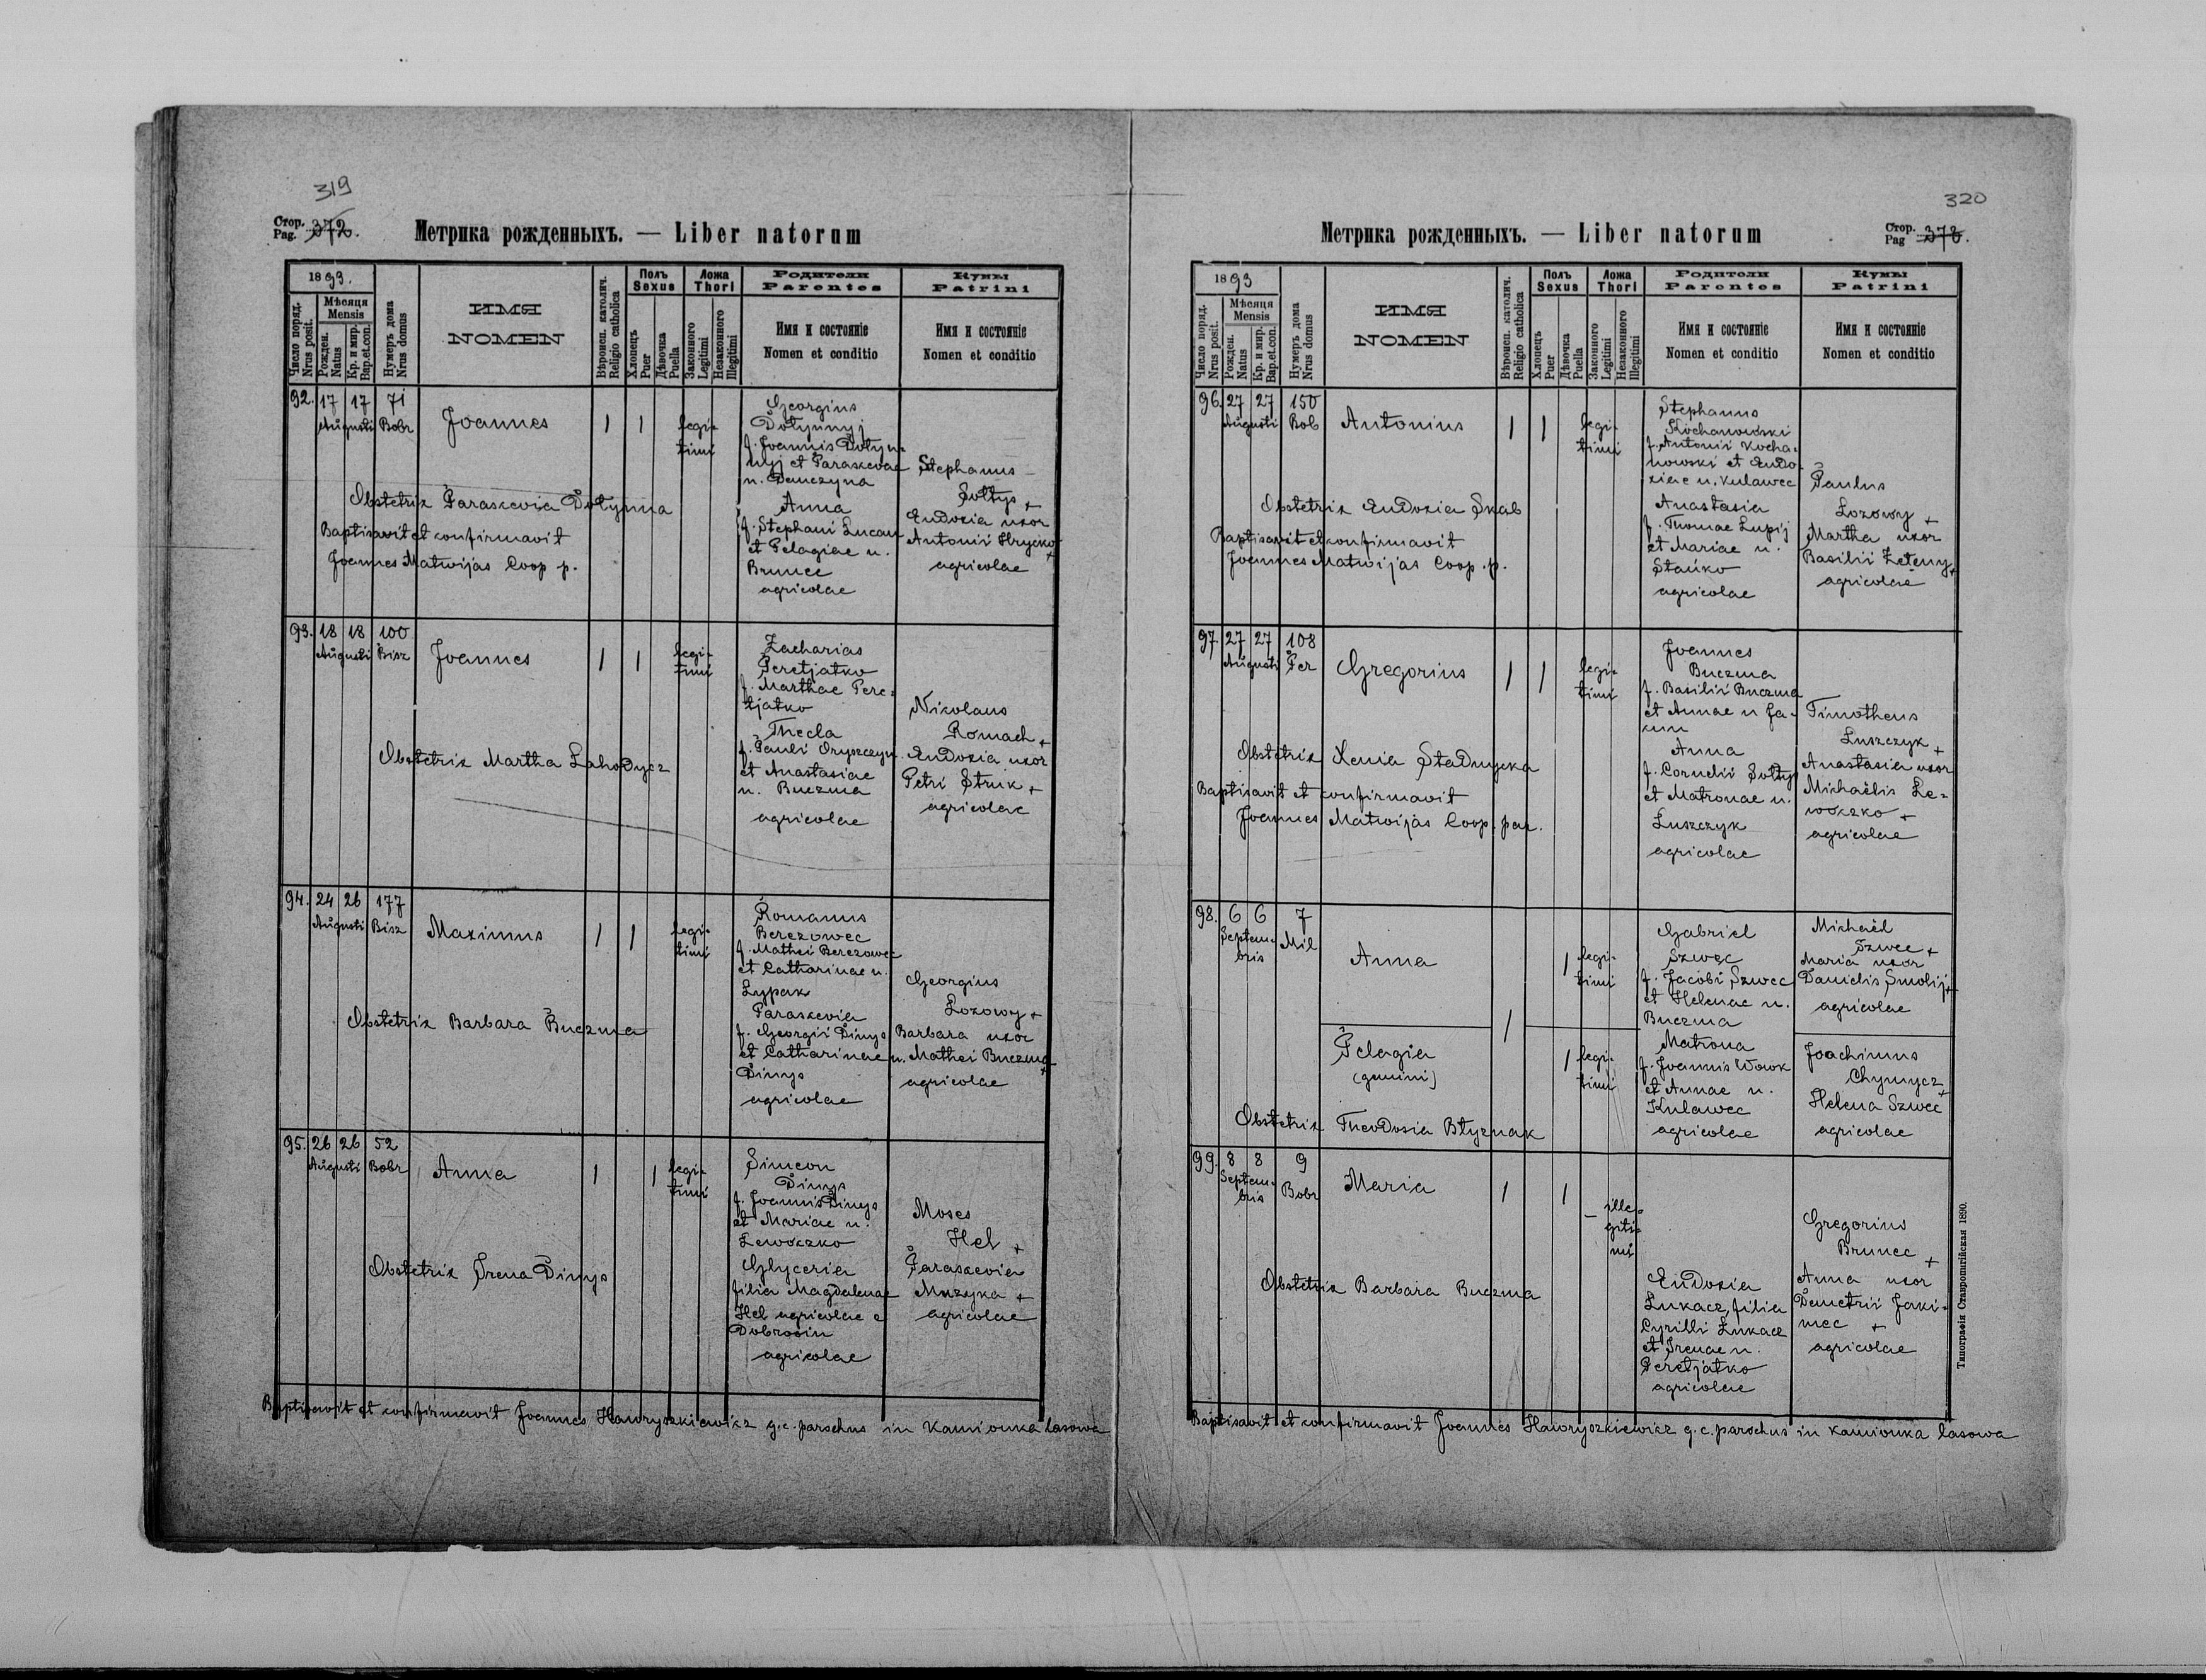 319
Стор.
Pag. 372.
Метрика рожденныхъ. — Liber natorum
1893.
Число поряд.
Nrus posit.
Мѣсяця
Mensis
Рожден.
Natus
Кр. и мир.
Bap.et.con.
Нумеръ дома
Nrus domus
ИМЯ
NOMEN
Вѣроисп. католич.
Religio catholica
Полъ
Sexus
Хлопецъ
Puer
Дѣвочка
Puella
Ложа
Thori
Законного
Legitimi
Незаконного
Illegitimi
Родители
Parentes
Имя и состояніе
Nomen et conditio
Кумы
Patrini
Имя и состояніе
Nomen et conditio
92. 17 17 71
Augusti Bobr
Joannes
1 1
legi-
timi
Georgius
Dotynnyj
f. Joannis Dotyn-
nyj et Paraskevae
n. Demczyna
Anna
f. Stephani Lucan
et Pelagiae n.
Brunec
agricolae
Stephanus
Sołtys +
Eudoxia uxor
Antonii Hrycko +
agricolae
Obstetrix Paraskevia Dotynna
Baptisavit et confirmavit
Joannes Matwijas Coop p.
93. 18 18 100
Augusti Bisz
Joannes
1 1
legi-
timi
Zacharias
Peretjatko
f. Marthae Pere-
tjatko
Thecla
f. Pauli Oryszczyn
et Anastasiae
n. Buczma
agricolae
Nikolaus
Romach +
Eudoxia uxor
Petri Struk +
agricolae
Obstetrix Martha Lahodycz
94. 24 26 177
Augusti Bisz
Maximus
1 1
legi-
timi
Romanus
Berezowec
f. Mathei Berezowec
et Catharinae n.
Lypak
Paraskevia
f. Georgii Dinys
et Catharinae n.
Dinys
agricolae
Georgius
Lozowy +
Barbara uxor
Mathei Buczma +
agricolae
Obstetrix Barbara Buczma
95. 26 26 52
Augusti Bobr
Anna
1 1
legi-
timi
Simeon
Dinys
f. Joannis Dinys
et Mariae n.
Lewoczko
Glyceria
filia Magdalenae
Hel agricolae e
Dobrosin
agricolae
Moses
Hel +
Paraskevia
Muzyka +
agricolae
Obstetrix Irena Dinys
Baptisavit et confirmavit Joannes Hawryszkiewicz g.c. parochus in Kamionka lasowa
320
Стор.
Pag 373.
Метрика рожденныхъ. — Liber natorum
1893
Число поряд.
Nrus posit.
Мѣсяця
Mensis
Рожден.
Natus
Кр. и мир.
Bap.et.con.
Нумеръ дома
Nrus domus
ИМЯ
NOMEN
Вѣроисп. католич.
Religio catholica
Полъ
Sexus
Хлопецъ
Puer
Дѣвочка
Puella
Ложа
Thori
Законного
Legitimi
Незаконного
Illegitimi
Родители
Parentes
Имя и состояніе
Nomen et conditio
Кумы
Patrini
Имя и состояніе
Nomen et conditio
96. 27 27 150
Augusti Bob
Antonius
1 1
legi-
timi
Stephanus
Kochanowski
f. Antonii Kocha-
nowski et Eudo-
xiae n. Kulawec
Anastasia
f. Thomae Lupij
et Mariae n.
Stańko
agricolae
Paulus
Lozowy +
Martha uxor
Basilii Zeleny +
agricolae
Obstetrix Eudoxia Skab
Baptisavit et confirmavit
Joannes Matwijas Coop. p.
97. 27 27 108
Augusti Per
Gregorius
1 1
legi-
timi
Joannes
Buczma
f. Basilii Buczma
et Annae n Ja-
kun
Anna
f. Cornelii Sołtys
et Matronae n.
Luszczyk
agricolae
Timotheus
Luszczyk +
Anastasia uxor
Michaëlis Le-
woczko +
agricolae
Obstetrix Xenia Stadnycka
Baptisavit et confirmavit
Joannes Matwijas Coop. par.
98. 6 6 7
Septem-
bris
Mil
Anna
1
legi-
timi
Gabriel
Szwec
f. Jacobi Szwec
et Helenae n.
Buczma
Matrona
f. Joannis Wowk
et Annae n.
Kulawec
agricolae
Michaël
Szwec +
Maria uxor
Danielis Smolij +
agricolae
1
Pelagia
(gemini)
1
legi-
timi
Joachimus
Chymycz +
Helena Szwec
agricolae
Obstetrix Theodosia Błyznak
99. 8 8 9
Septem-
bris
Bobr
Maria
1 1
ille-
giti-
mi
Eudoxia
Lukacz, filia
Cyrilli Lukacz
et Irenae n.
Peretjatko
agricolae
Gregorius
Brunec +
Anna uxor
Demetrii Jaki-
mec +
agricolae
Obstetrix Barbara Buczma
Baptisavit et confirmavit Joannes Hawryszkiewicz g.c. parochus in Kamionka lasowa
Типографія Ставропигійская 1890.